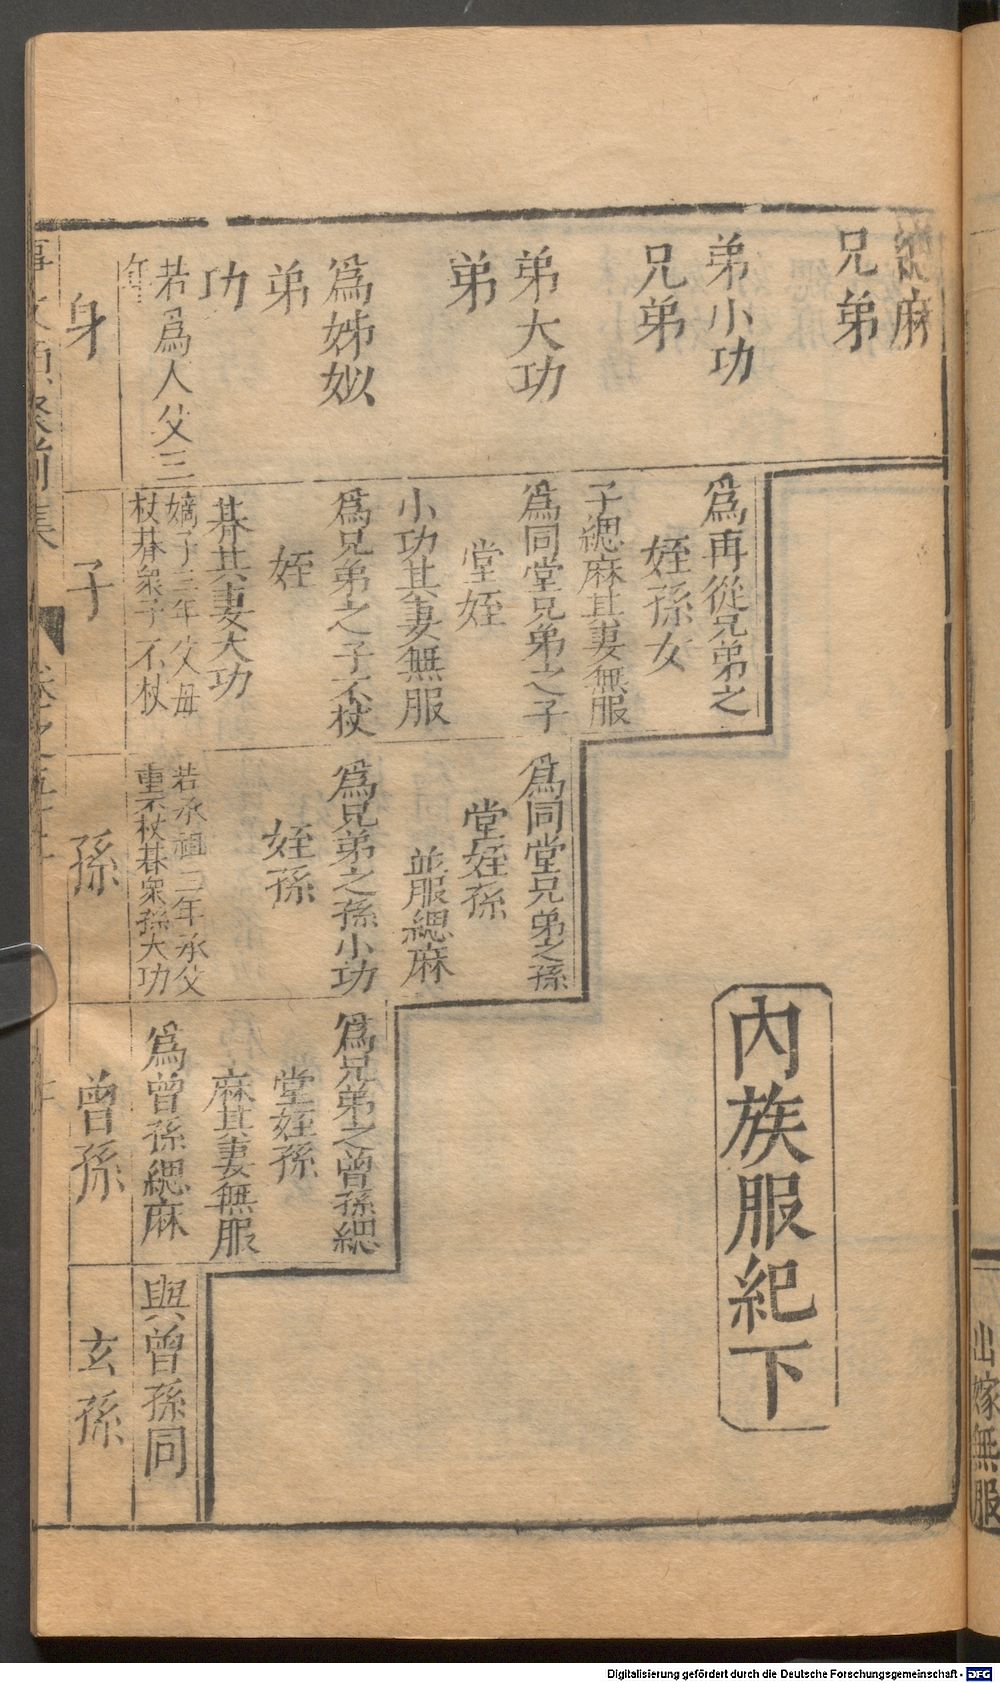 緦麻
兄弟
弟小功
兄弟
弟大功
弟
爲姊姒
弟
功
若爲人父三
年
身
爲再從兄弟之
姪孫女
子緦麻其妻無服
爲同堂兄弟之子
堂姪
小功其妻無服
爲兄弟之子不杖
姪
朞其妻大功
嫡子三年父母
杖朞衆子不杖
子
爲同堂兄弟之孫
堂姪孫
並服緦麻
爲兄弟之孫小功
姪孫
若承祖三年承父
重不杖朞衆孫大功
孫
爲兄弟之曾孫緦
堂姪孫
麻其妻無服
爲曾孫緦麻
曾孫
與曾孫同
玄孫
內族服紀下
事文類聚前集
卷之五十
出嫁無服
Digitalisierung gefördert durch die Deutsche Forschungsgemeinschaft - DFG